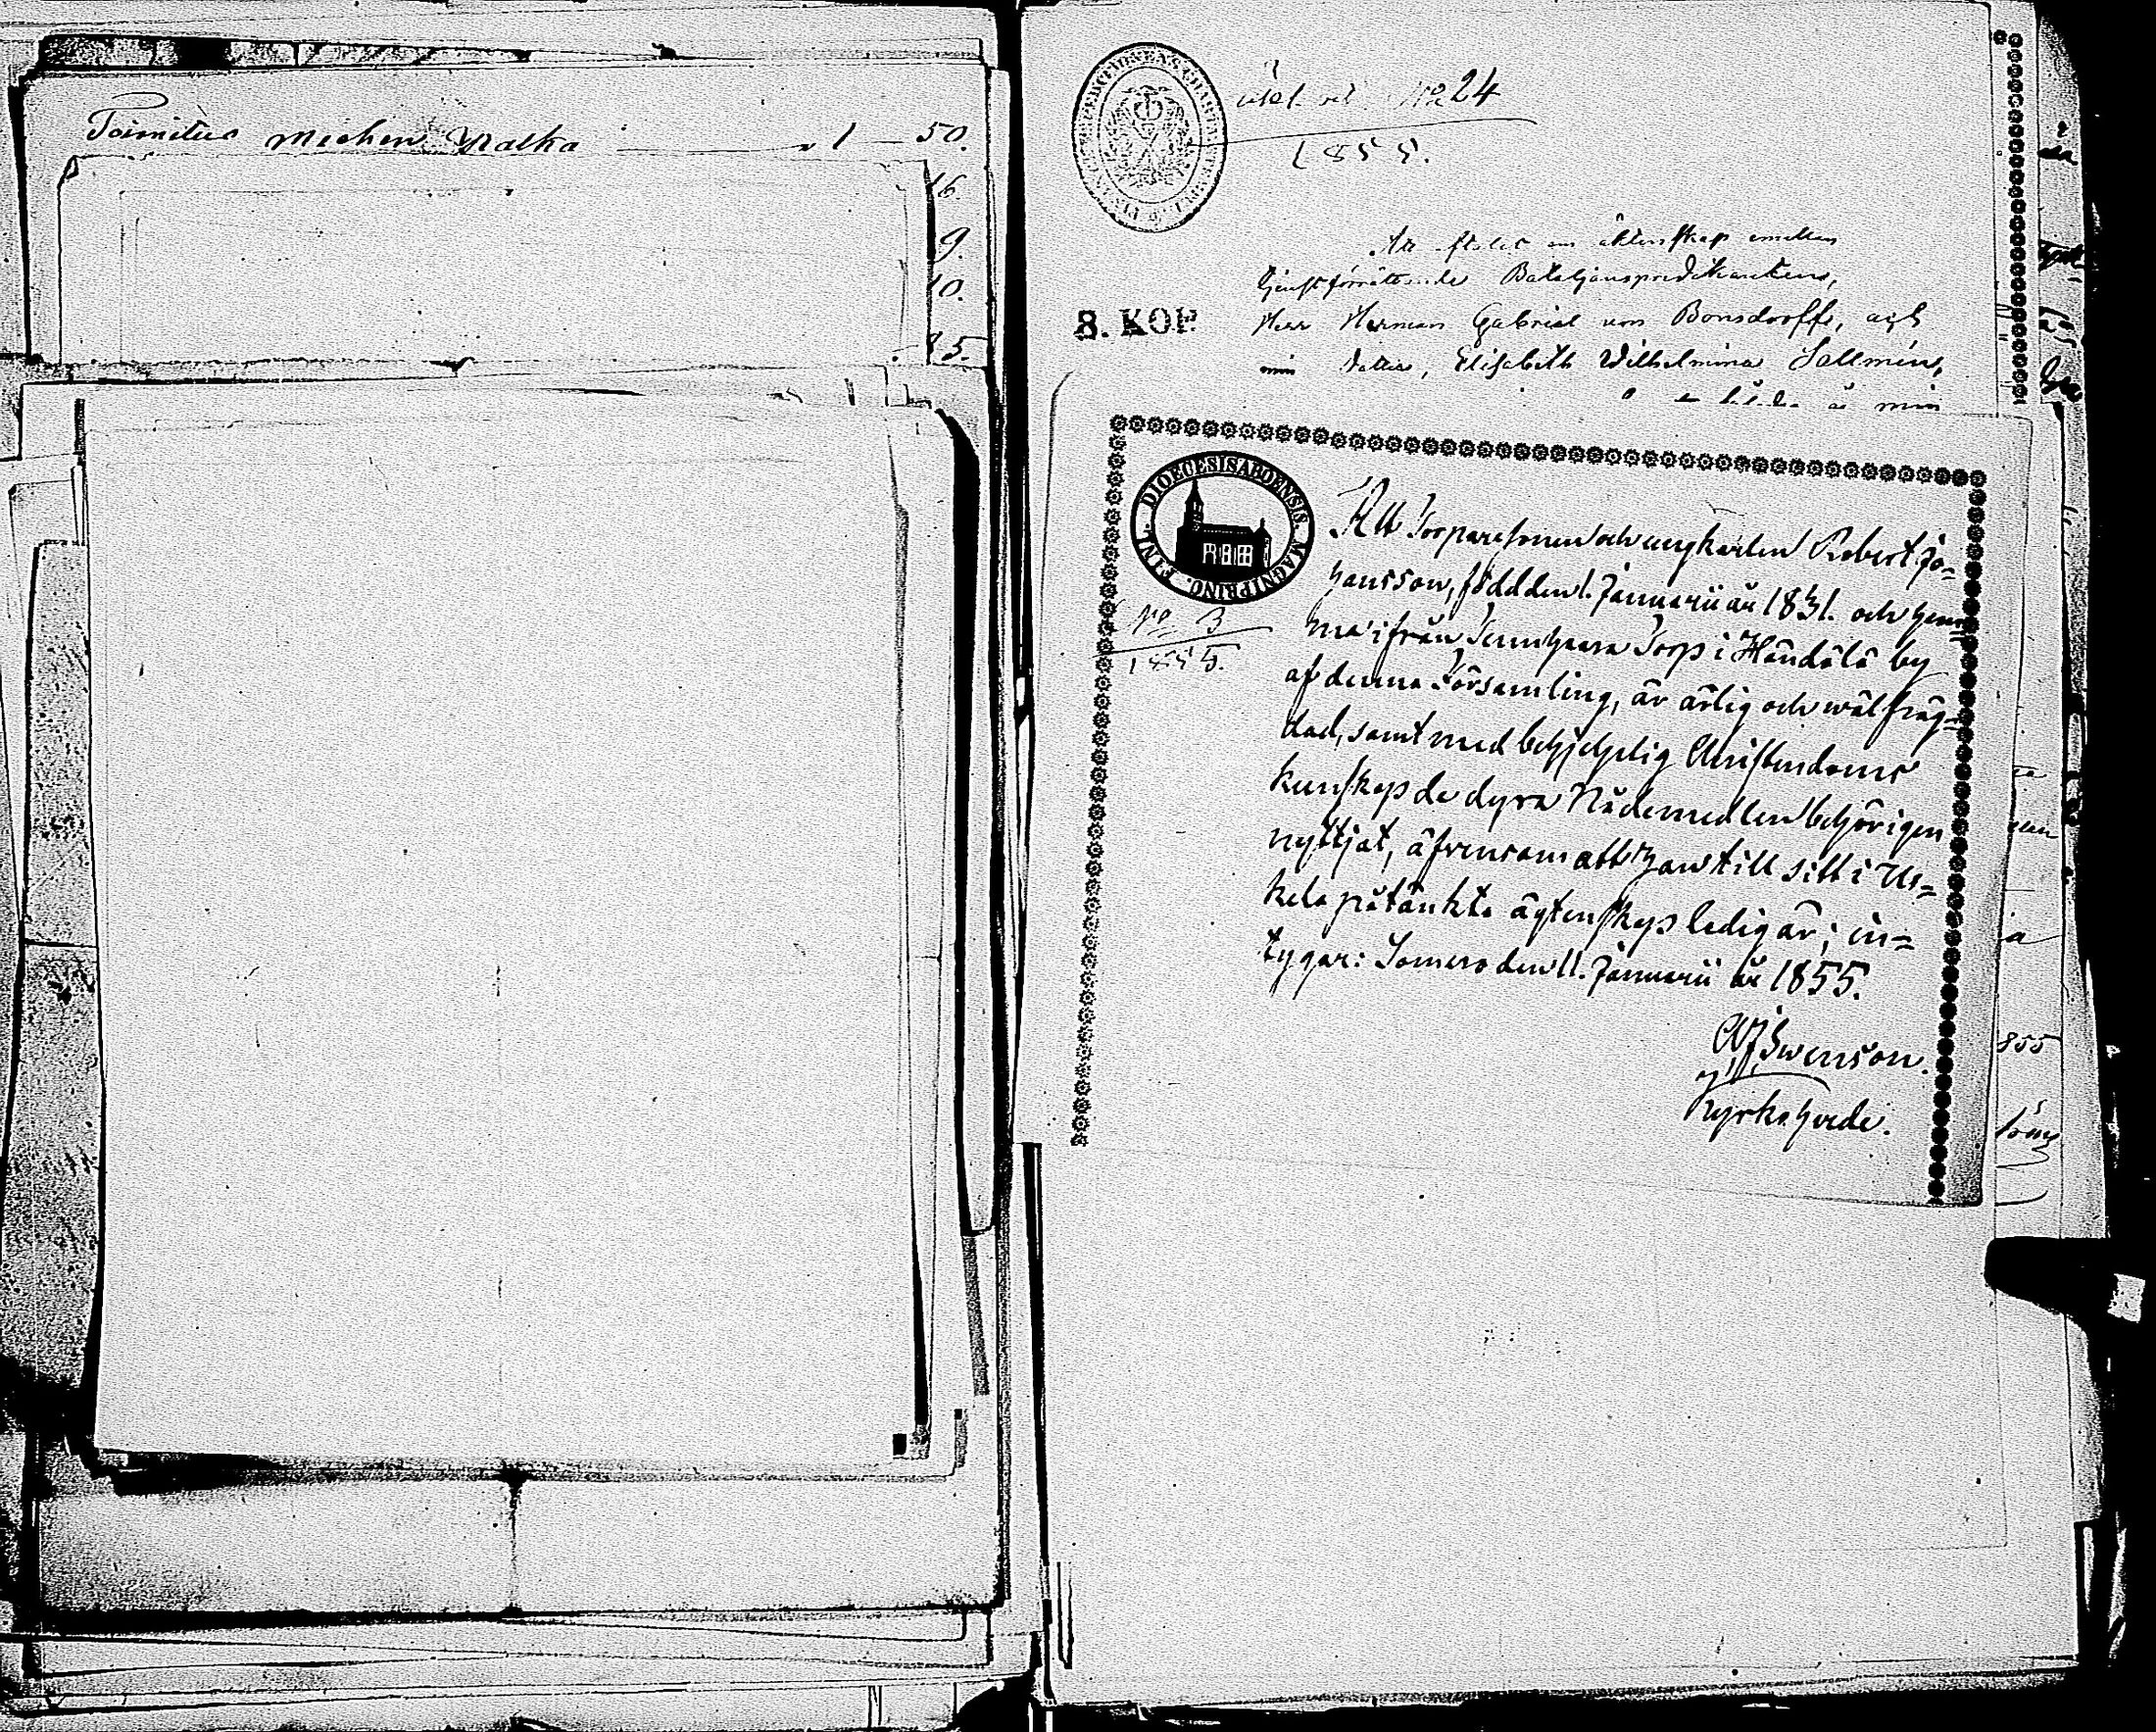 Toimitus miehen Matka 1 50.
16.
9.
10.
15.
No 24
1855.
8. KOP.
Att åktenskap emellan
tjenstförrättande Bataljonspredikanten,
Herr Herman Gabriel von Bonsdorff, och
min dotter, Elisabeth Wilhelmina Sallmén,
min
FINL. DIOECESIS ABOENSIS. MAGN. PRINC.
No 3
1855.
Att Torparesonen och ungkarlen Robert Jo=
hansson, född den 1. Januarii år 1831. och hem=
ma ifrån Torp i Håndålå by
af denna Församling, är ärlig och wälfräg=
dad, samt med behjelplig Christendoms
kunskap de dyra Nådemedlen behörigen
nyttjat, äfvensom att han till sitt i Us=
kela påtänkta ägtenskap ledig är; in=
tygar: Somero den 11. Januarii år 1855.
Swenson.
Kyrkoherde.
855